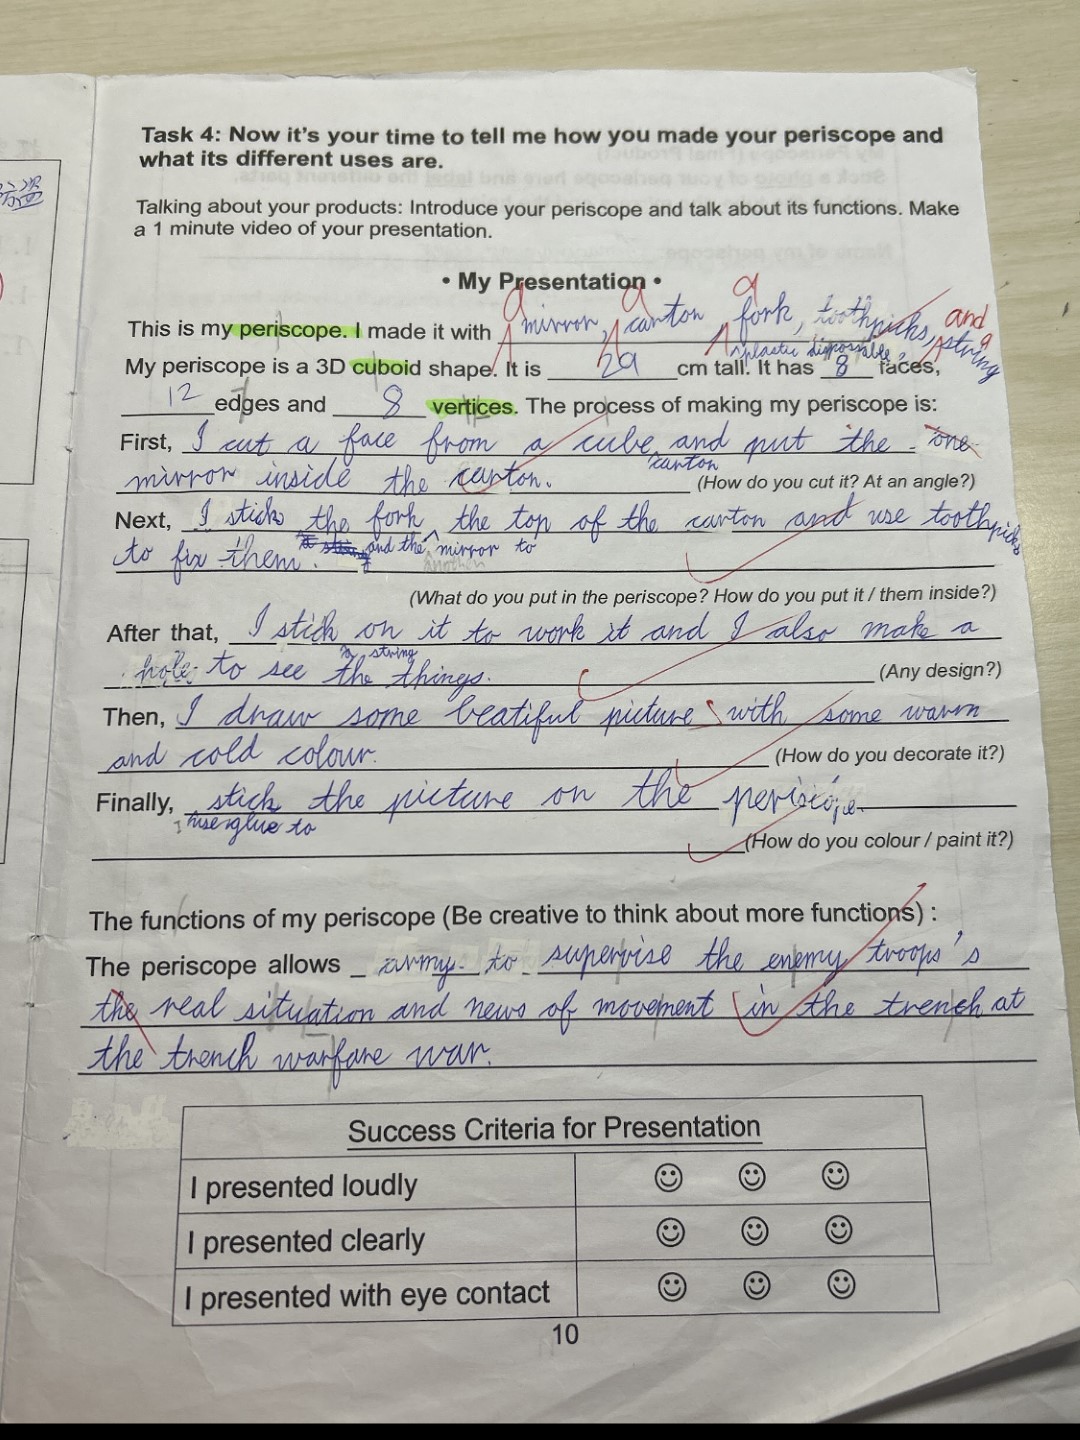 Task 4: Now it's your time to tell me how you made your periscope and
what its different uses are.
Talking about your products: Introduce your periscope and talk about its functions. Make
a 1 minute video of your presentation.
• My Presentation •
a a a
This is my periscope. I made it with mirror, canton, fork, toothpicks, and a string
plastic disposable
My periscope is a 3D cuboid shape. It is 29 cm tall. It has 8 faces,
12 edges and 8 vertices. The process of making my periscope is:
First, I cut a face from a cube and put the one
canton
mirror inside the canton. (How do you cut it? At an angle?)
Next, I stick the fork the top of the canton and use toothpicks
and the mirror to
another
to fix them.
(What do you put in the periscope? How do you put it / them inside?)
After that, I stick on it to work it and I also make a
a string
hole to see the things. (Any design?)
Then, I draw some beatiful pictures with some warm
and cold colour. (How do you decorate it?)
Finally, stick the picture on the periscope.
I use glue to
(How do you colour / paint it?)
The functions of my periscope (Be creative to think about more functions) :
The periscope allows army to supervise the enemy troops's
the real situation and news of movement in the trench at
the trench warfare war.
Success Criteria for Presentation
I presented loudly
I presented clearly
I presented with eye contact
10